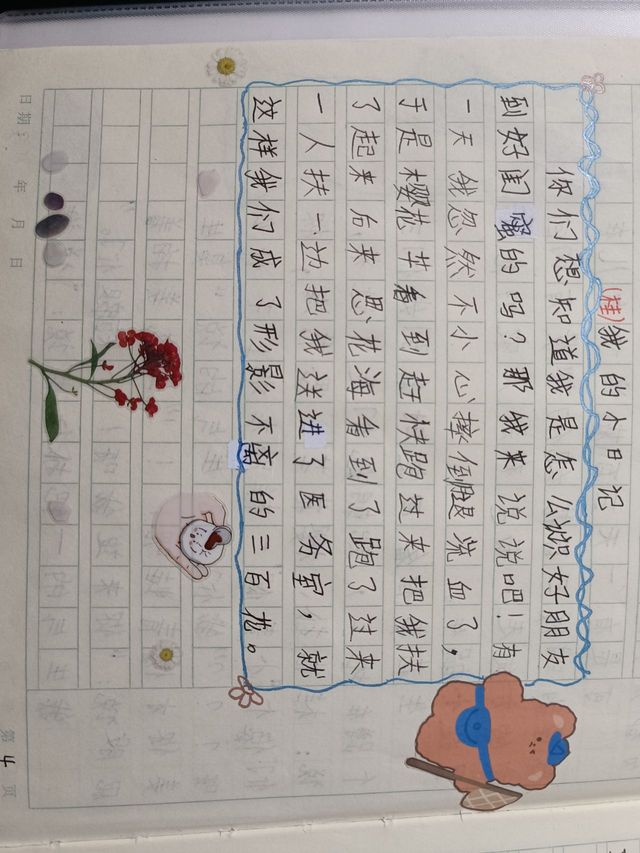 (桂)我的小日记
你们想知道我是怎么好朋友
到好闺蜜的吗?那我来说说吧!有
一天我忽然不小心摔倒腿流血了,
于是樱花草看到赶快跑过来把我扶
了起来后来思花海看到了跑了过来
一人扶一边把我送进了医务室,就
这样我们成了形影不离的三百花。
日期: 年 月 日
第 4 页